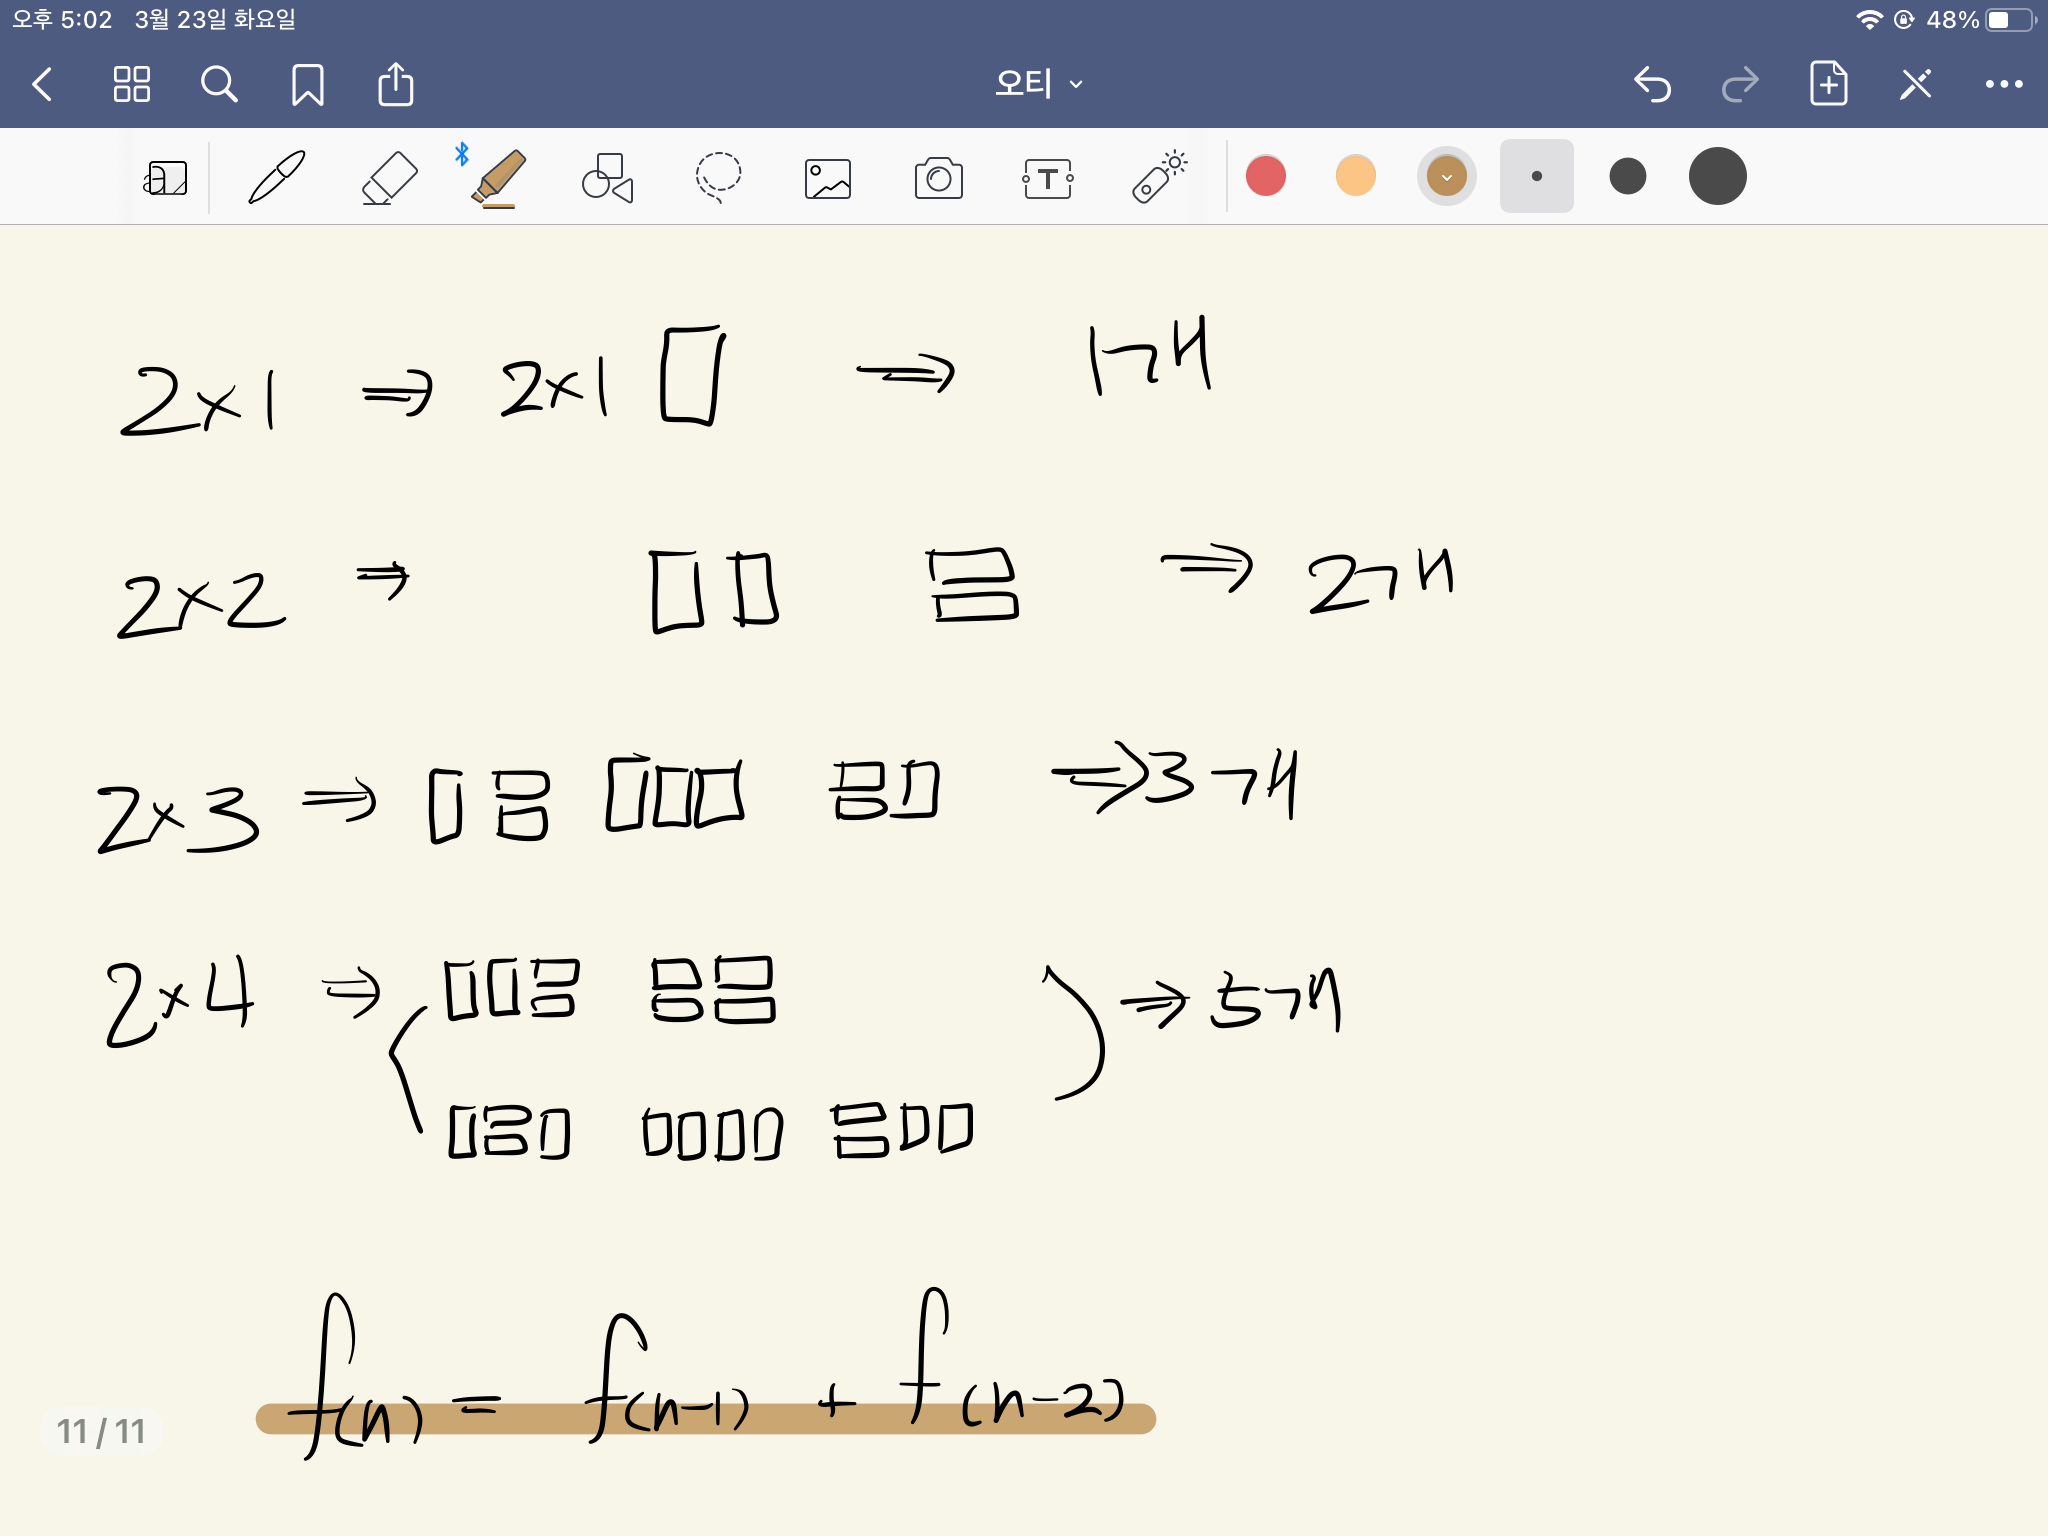 오후 5:02 3월 23일 화요일 48%
오티
2×1 ⇒ 2×1 ⇒ 1개
2×2 ⇒ ⇒ 2개
2×3 ⇒ ⇒ 3개
2×4 ⇒ ⇒ 5개
f(n) = f(n-1) + f(n-2)
11 / 11